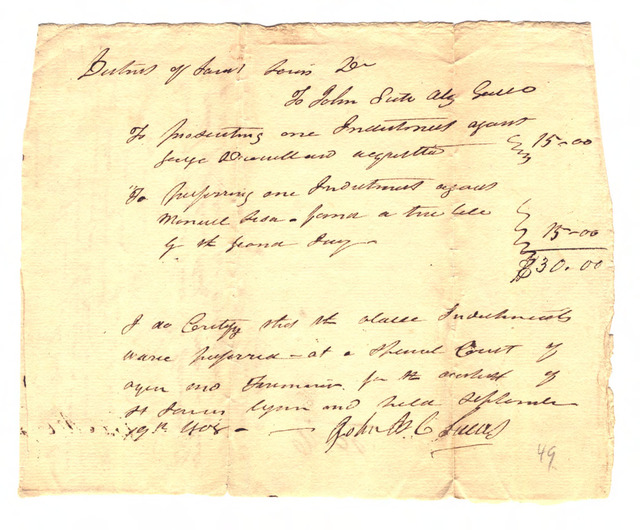 District of Saint Louis Dr
To John Scott Atty Genl
To prosecuting one Indictment against
George acquitted 15-00
To preferring one Indictment against
Manuel Lisa - found a true bill
by the Grand Jury - 15-00
$30.00
I do Certify that the above Indictments
ware preferred - at a Special Court of
oyer and Terminer for the district of
St Louis begun and held September
19th 180 - John B. C. Lucas
49